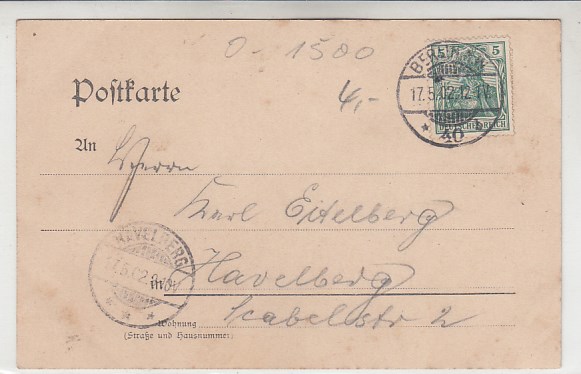 O-1500
4,-
5
BERLIN N.W.
17.5.02.12-1V.
40 b
Postkarte
An Herrn
Karl Eitelberg
in Havelberg
Scabelstr 2
HAVELBERG
17.5.02.
Wohnung
(Straße und Hausnummer)